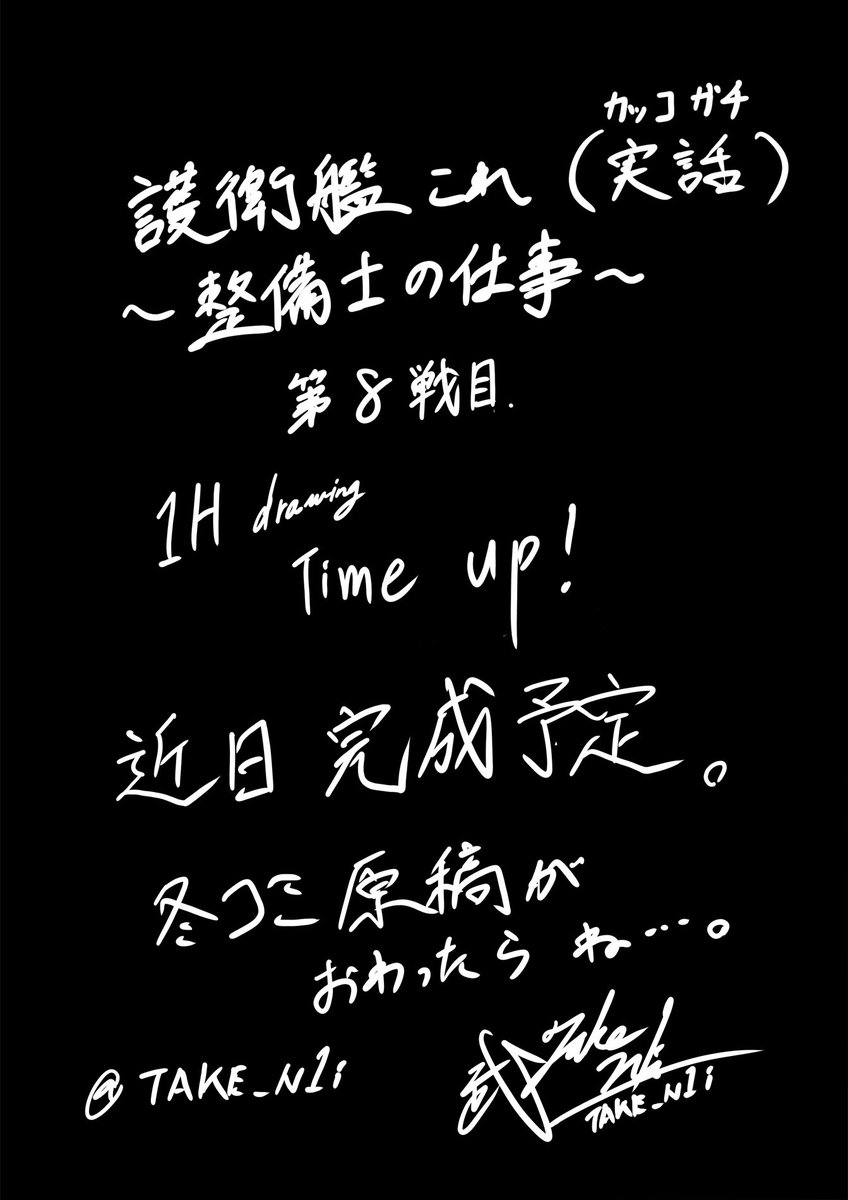 カッコガチ
護衛艦これ(実話)
~整備士の仕事~
第8戦目.
1H drawing
Time up!
近日完成予定。
冬コミ原稿が
おわったらね…。
@TAKE_N1i
TAKE_N1i